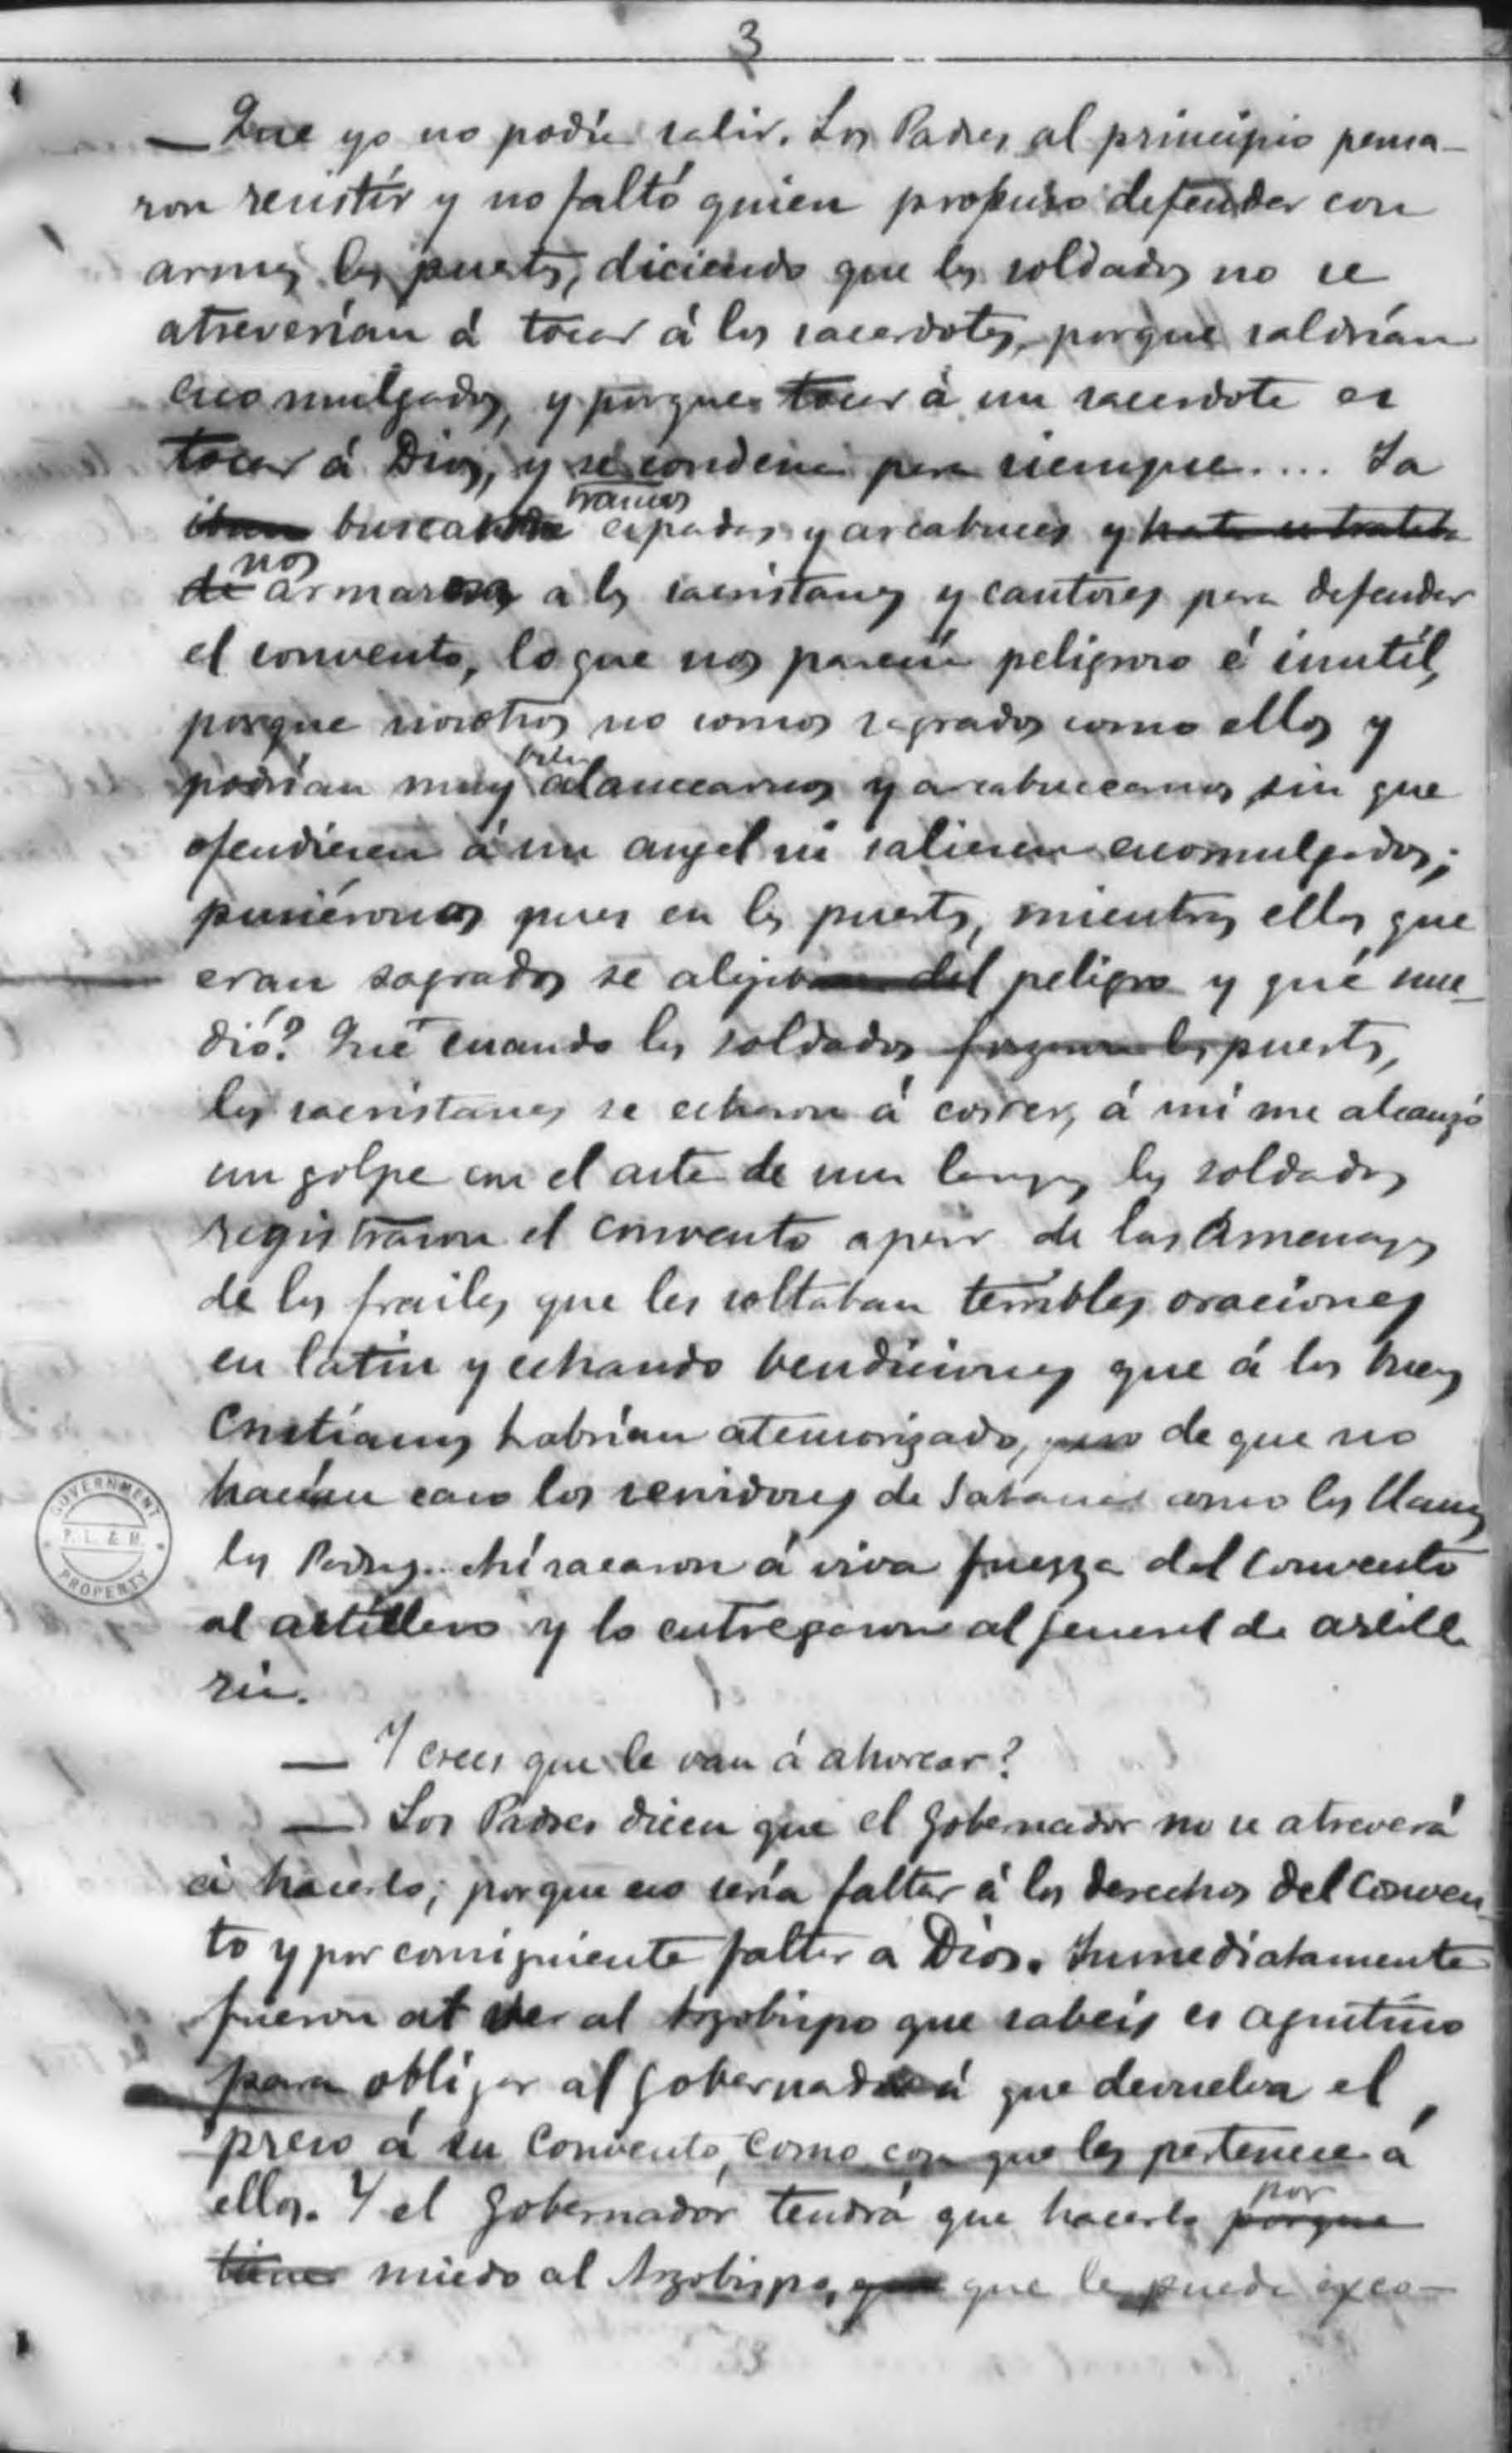 3
— Que yo no podía salir. Los Padres al principio pensa-
ron resistir y no faltó quien propuso defender con
armas las puertas, diciendo que los soldados no se
atreverían á tocar á los sacerdotes, porque saldrían
excomulgados, y porque tocar á un sacerdote es
tocar á Dios, y se condena para siempre.... Ya
iban buscando
tramos
espadas y arcabuces y hasta se trataba
de
nos
armar a los sacristanes y cantores para defender
el convento, lo que nos parecía peligroso é inutil,
porque nosotros no somos sagrados como ellos y
podrían muy
bien
alancearnos y arcabucearnos sin que
ofendiesen á un angel ni saliesen excomulgados;
pusiéronnos pues en las puertas, mientras ellos que
eran sagrados se alejaban del peligro y qué suce-
dió? Que cuando los soldados forzaron las puertas,
los sacristanes se echaron á correr, á mí me alcanzó
un golpe con el asta de una lanza, los soldados
registraron el convento a pesar de las amenazas
de los frailes que les soltaban terribles oraciones
en latin y echando bendiciones que á los buenos
Cristianos habrían atemorizado, pero de que no
hacían caso los servidores de Satanas como los llaman
los Padres. Así sacaron á viva fuerza del convento
al artillero y lo entregaron al general de artille
ria.
— Y crees que le van á ahorcar?
— Los Padres dicen que el Gobernador no se atreverá
á hacerlo, porque eso sería faltar á los derechos del Conven
to y por consiguiente faltar a Dios. Inmediatamente
fueron al ver al Arzobispo que sabeis es agustino
para obligar al Gobernador á que devuelva el
preso á su Convento, como cosa que les pertenece á
ellos. Y el Gobernador tendrá que hacerlo porque
por
tiene miedo al Arzobispo, que que le puede exco-
GOVERNMENT
P. L. & M.
PROPERTY